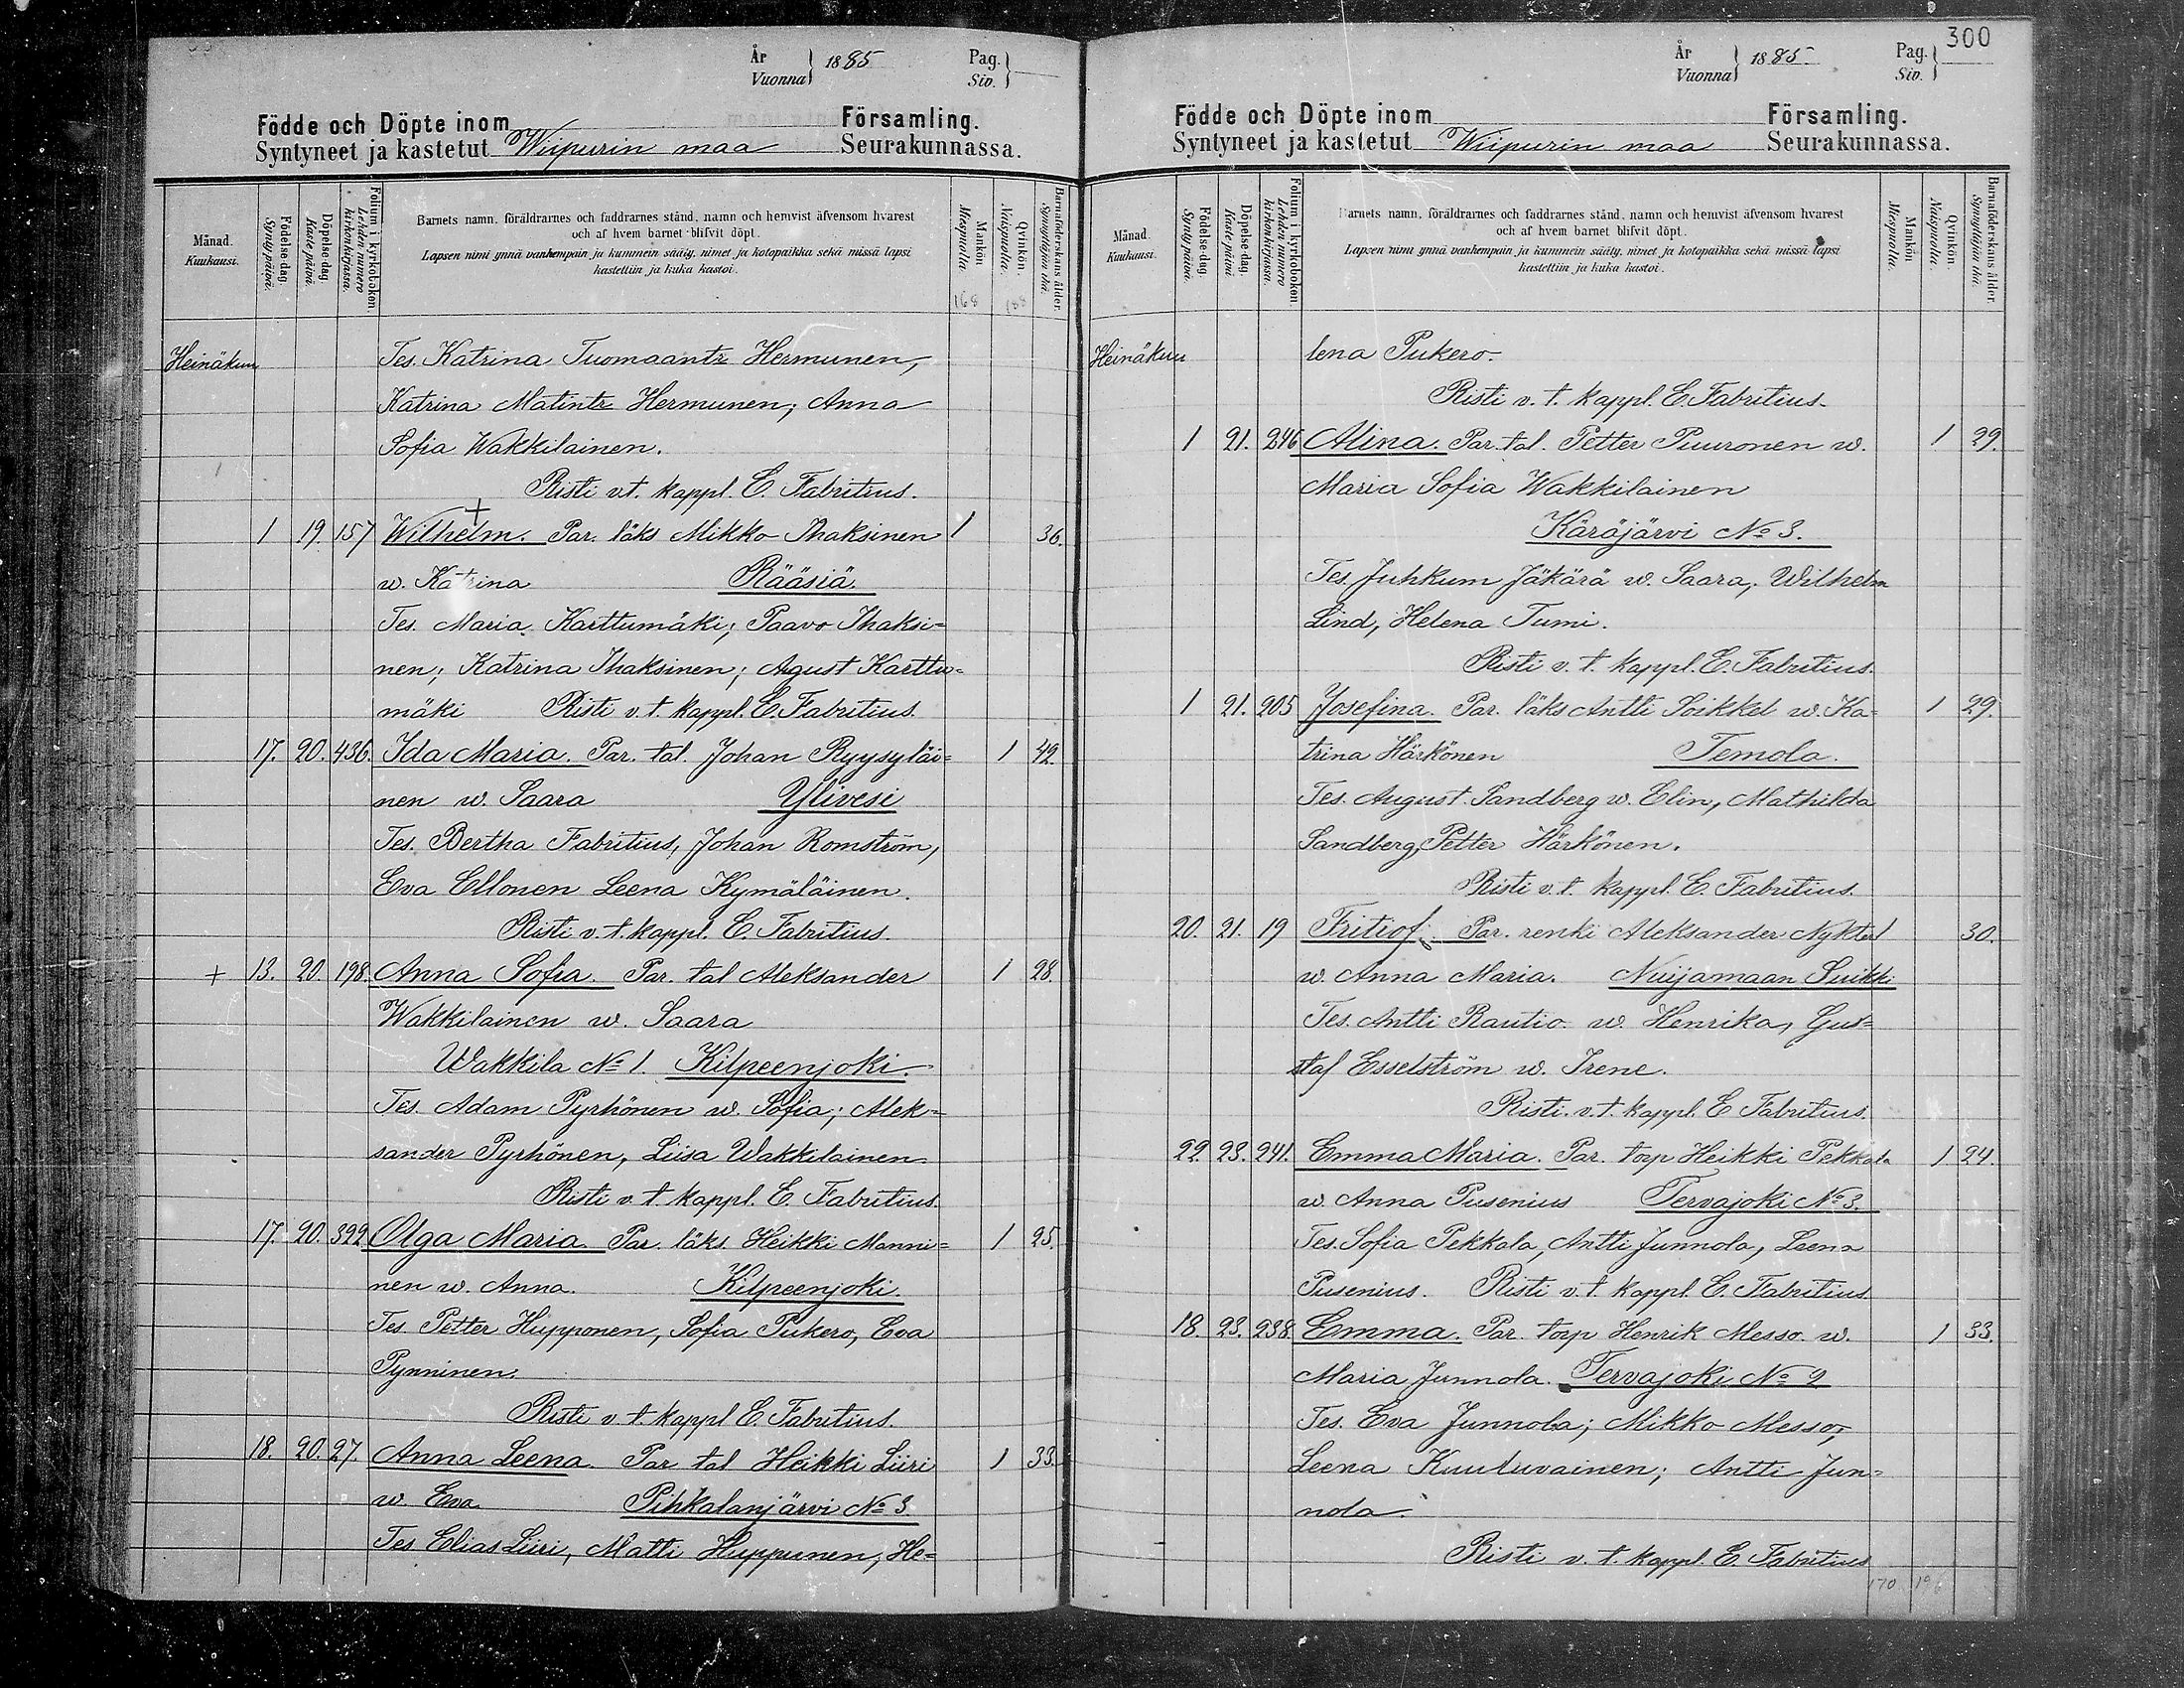 År
Vuonna } 1885
Pag.
Siv. } —
Födde och Döpte inom Församling.
Syntyneet ja kastetut Wiipurin maa Seurakunnassa.
Månad.
Kuukausi.
Födelse-dag.
Synty päivä.
Döpelse-dag.
Kaste päivä.
Folium i kyrkobokon.
Lehden numero kirkonkirjassa.
Barnets namn, föräldrarnes och faddrarnes stånd, namn och hemvist äfvensom hvarest
och af hvem barnet blifvit döpt.
Lapsen nimi ynnä vanhempain ja kummein sääty, nimet ja kotopaikka sekä missä lapsi
kastettiin ja kuka kastoi.
Mankön
Miespuolia.
Qvinkön.
Naispuolia.
Barnaföderskans ålder.
Synnyttäjän ikä.
168 188
Heinäkuu Tes. Katrina Tuomaantr Hermunen,
Katrina Matintr Hermunen; Anna
Sofia Wakkilainen.
Risti v.t. kappl. E. Fabritius.
+
1 19. 157 Wilhelm. Par. läks Mikko Ihaksinen 1 36.
w. Katrina Rääsiä.
Tes. Maria Karttumäki; Paavo Ihaksi=
nen; Katrina Ihaksinen; Agust Karttu=
mäki Risti v.t. kappl. E. Fabritius.
17. 20. 436. Ida Maria. Par. tal. Johan Ryysyläi= 1 42.
nen w. Saara Ylivesi
Tes. Bertha Fabritius, Johan Romström,
Eva Ellonen Leena Kymäläinen.
Risti v.t. kappl. E. Fabritius.
+ 13. 20. 198. Anna Sofia. Par. tal Aleksander 1 28.
Wakkilainen w. Saara
Wakkila No 1. Kilpeenjoki.
Tes. Adam Pyrhönen w. Sofia; Alek=
sander Pyrhönen, Liisa Wakkilainen.
Risti v.t. kappl. E. Fabritius.
17. 20. 392. Olga Maria. Par. läks. Heikki Manni= 1 25.
nen w. Anna. Kilpeenjoki.
Tes. Petter Hupponen, Sofia Pukero, Eva
Pynninen.
Risti v.t. kappl E. Fabritius.
18. 20. 27. Anna Leena. Par tal Heikki Liiri 1 33.
w. Eva Pihkalanjärvi No 3.
Tes Elias Liiri, Matti Huppunen, He=
300
År
Vuonna } 1885
Pag.
Siv. }
Födde och Döpte inom Församling.
Syntyneet ja kastetut Wiipurin maa Seurakunnassa.
Månad.
Kuukausi.
Födelse-dag.
Synty päivä.
Döpelse-dag.
Kaste päivä.
Folium i kyrkobokon.
Lehden numero kirkonkirjassa.
Barnets namn, föräldrarnes och faddrarnes stånd, namn och hemvist äfvensom hvarest
och af hvem barnet blifvit döpt.
Lapsen nimi ynnä vanhempain ja kummein sääty, nimet ja kotopaikka sekä missä lapsi
kastettiin ja kuka kastoi.
Mankön
Miespuolia.
Qvinkön.
Naispuolia.
Barnaföderskans ålder.
Synnyttäjän ikä.
Heinäkuu lena Pukero.
Risti v.t. kappl. E. Fabritius.
1 21. 246 Alina. Par. tal. Petter Puuronen w. 1 29.
Maria Sofia Wakkilainen
Käräjärvi No 3.
Tes. Juhkum Jäkärä w. Saara, Wilhelm
Lind, Helena Tumi.
Risti v.t. kappl. E. Fabritius.
1 21. 205 Josefina. Par. läks Antti Soikkel w. Ka= 1 29.
trina Härkönen Temola.
Tes. August Sandberg w. Elin, Mathilda
Sandberg, Petter Härkönen.
Risti v.t. kappl. E. Fabritius.
20. 21. 19 Fritiof. Par. renki Aleksander Nykter 1 30.
w. Anna Maria. Nuijamaan Suikki
Tes. Antti Rautio w. Henrika, Gus=
staf Esselström w. Irene.
Risti v.t. kappl. E Fabritius.
22. 23. 241. Emma Maria. Par. torp Heikki Pekkala 1 24.
w. Anna Pusenius Tervajoki No 3.
Tes. Sofia Pekkala, Antti Junnola, Leena
Pusenius. Risti v.t. kappl. E. Fabritius.
18. 23. 238. Emma. Par. torp Henrik Messo w. 1 33.
Maria Junnola. Tervajoki No 2
Tes. Eva Junnola; Mikko Messo,
Leena Kuuluvainen; Antti Jun=
nola.
Risti v.t. kappl. E. Fabritius
170 196